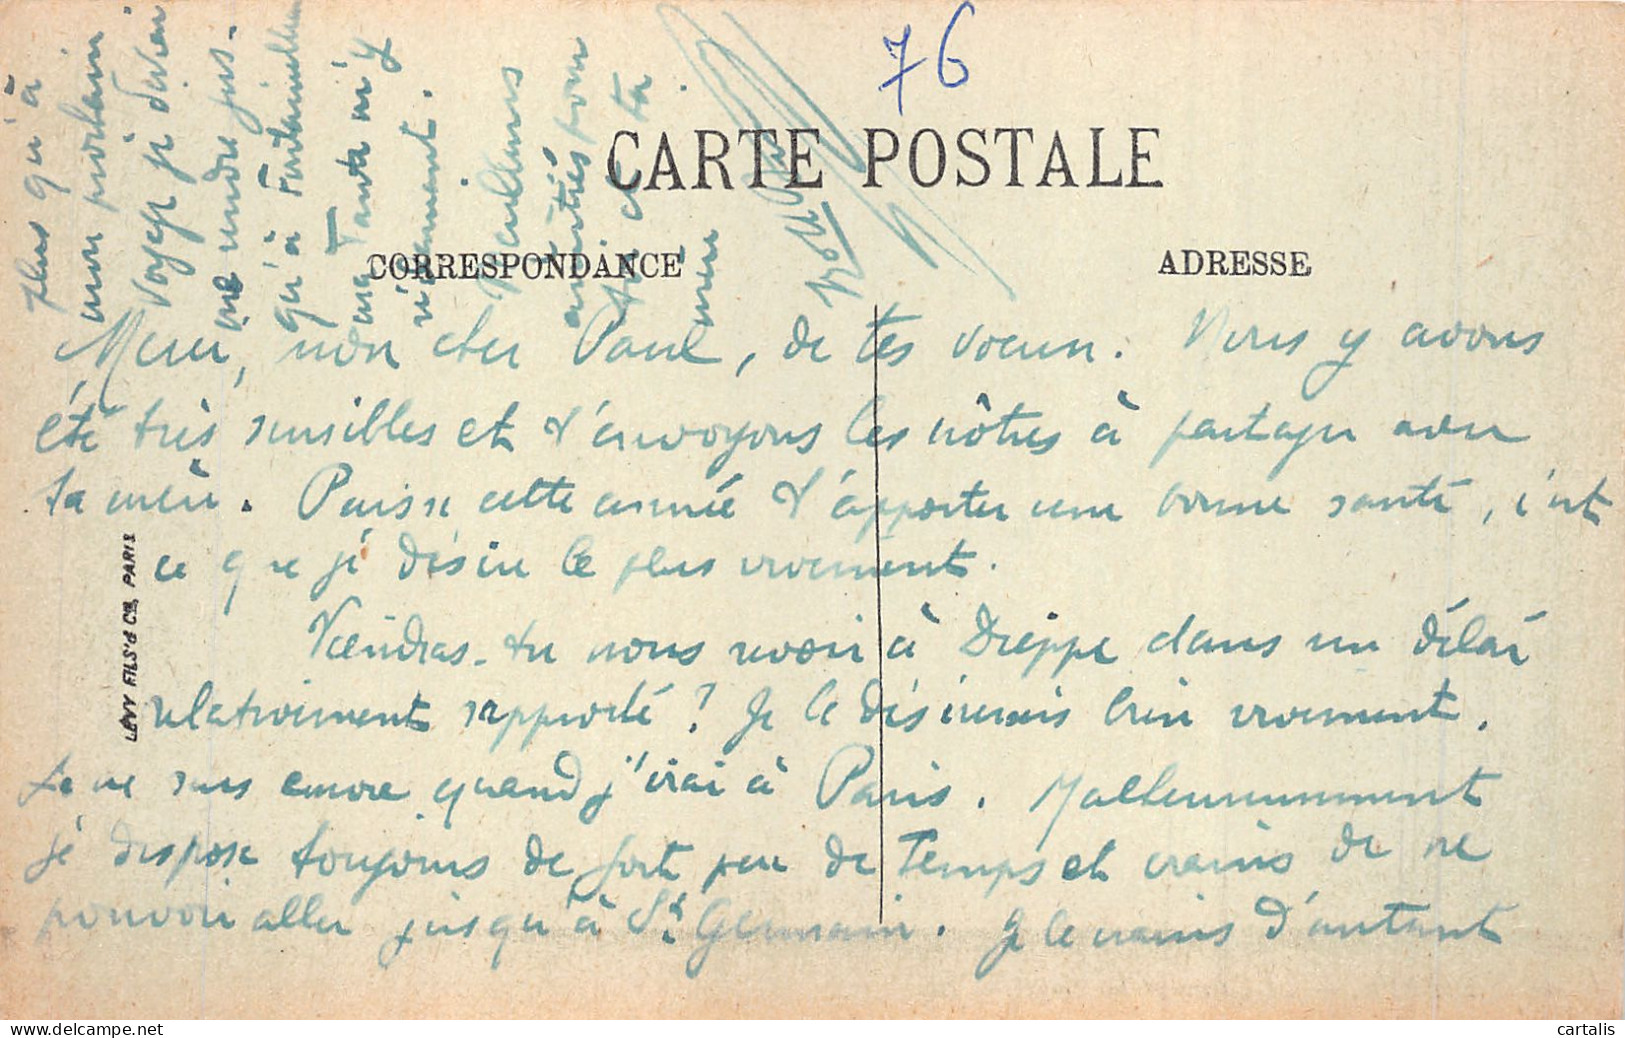 76
CARTE POSTALE
CORRESPONDANCE
ADRESSE
Merci, mon cher Paul, de tes voeux. Nous y avons
été très sensibles et t'envoyons les nôtres à partager avec
ta mère. Puisse cette année t'apporter une bonne santé, c'est
ce que je désire le plus vivement.
Viendras-tu nous revoir à Dieppe dans un délai
relativement rapproché ? Je le désirerais bien vivement.
Je ne sais encore quand j'irai à Paris. Malheureusement
je dispose toujours de fort peu de temps et crains de ne
pouvoir aller jusqu'à St Germain. Je le crains d'autant
plus qu'à
mon prochain
voyage je devrai
me rendre jus-
qu'à Fontainebleau
ma Tante m'y
réclamant.
Meilleures
amitiés pour
toi et ta
mère
LEVY FILS & Cie, PARIS
cartalis